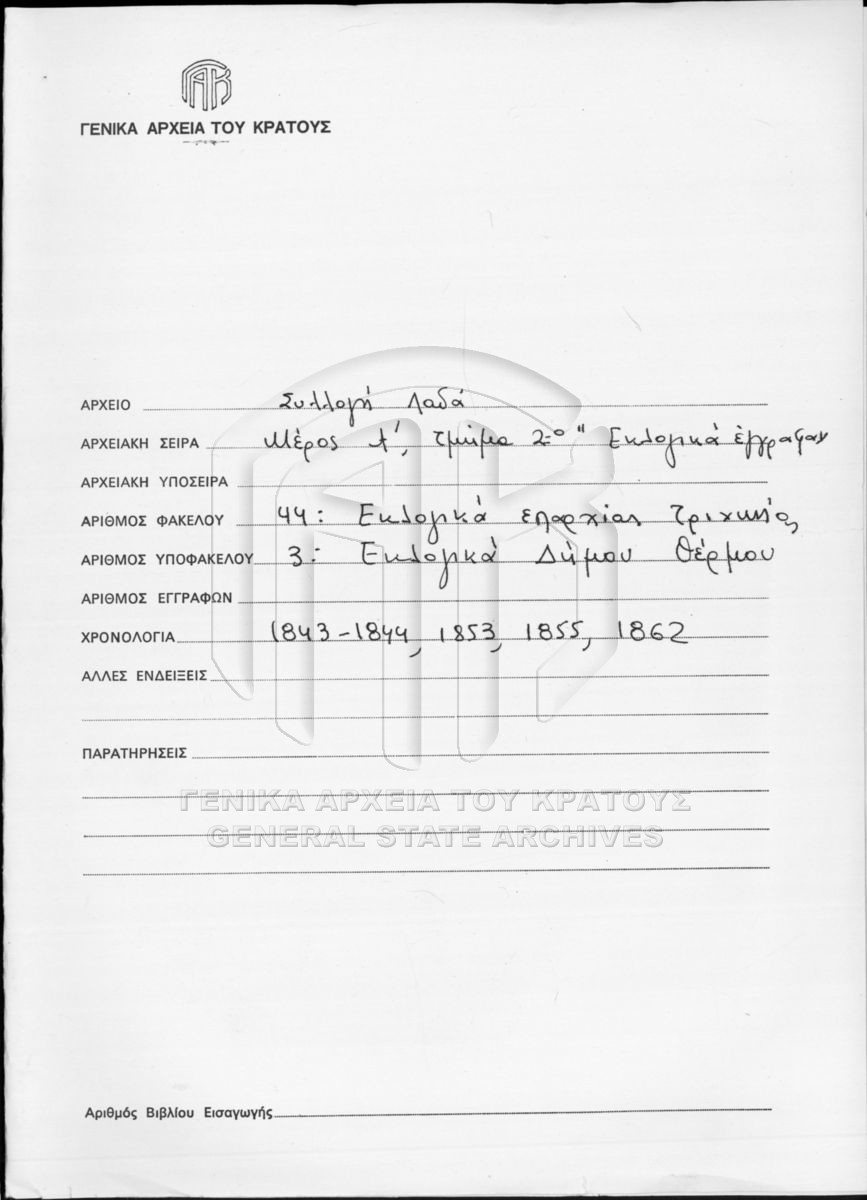 ΓΑΚ
ΓΕΝΙΚΑ ΑΡΧΕΙΑ ΤΟΥ ΚΡΑΤΟΥΣ
ΑΡΧΕΙΟ Συλλογή Λαδά
ΑΡΧΕΙΑΚΗ ΣΕΙΡΑ Μέρος Α', τμήμα 2ο " Εκλογικά έγγραφα"
ΑΡΧΕΙΑΚΗ ΥΠΟΣΕΙΡΑ
ΑΡΙΘΜΟΣ ΦΑΚΕΛΟΥ 44: Εκλογικά επαρχίας
ΑΡΙΘΜΟΣ ΥΠΟΦΑΚΕΛΟΥ 3: Εκλογικά Δήμου Θέρμου
ΑΡΙΘΜΟΣ ΕΓΓΡΑΦΩΝ
ΧΡΟΝΟΛΟΓΙΑ 1843-1844, 1853, 1855, 1862
ΑΛΛΕΣ ΕΝΔΕΙΞΕΙΣ
ΠΑΡΑΤΗΡΗΣΕΙΣ
ΓΕΝΙΚΑ ΑΡΧΕΙΑ ΤΟΥ ΚΡΑΤΟΥΣ
GENERAL STATE ARCHIVES
Αριθμός Βιβλίου Εισαγωγής